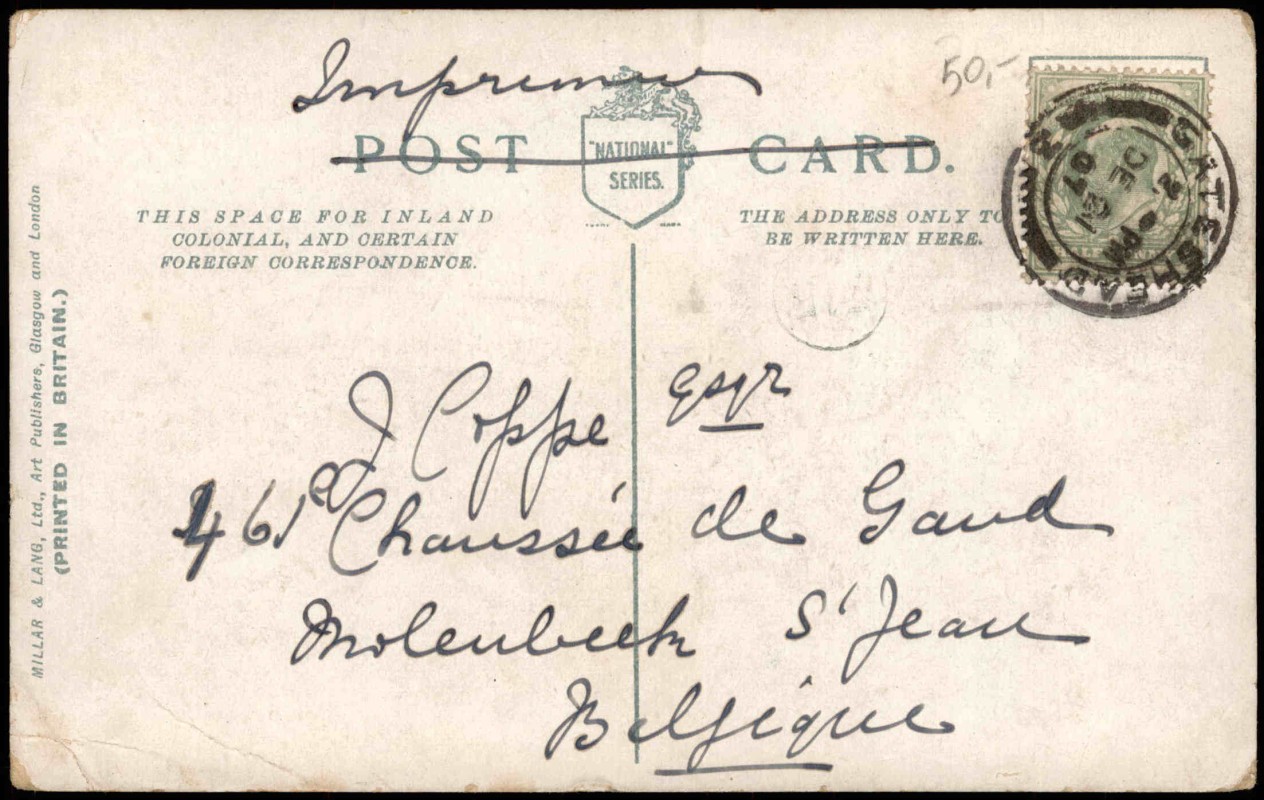 50,-
Imprimé
POST CARD.
"NATIONAL"
SERIES.
THIS SPACE FOR INLAND
COLONIAL, AND CERTAIN
FOREIGN CORRESPONDENCE.
THE ADDRESS ONLY TO
BE WRITTEN HERE.
GATESHEAD
PM
DE
07
J Coppe Esqr
461 Chaussée de Gand
Molenbeek St Jean
Belgique
MILLAR & LANG, Ltd., Art Publishers, Glasgow and London
(PRINTED IN BRITAIN.)